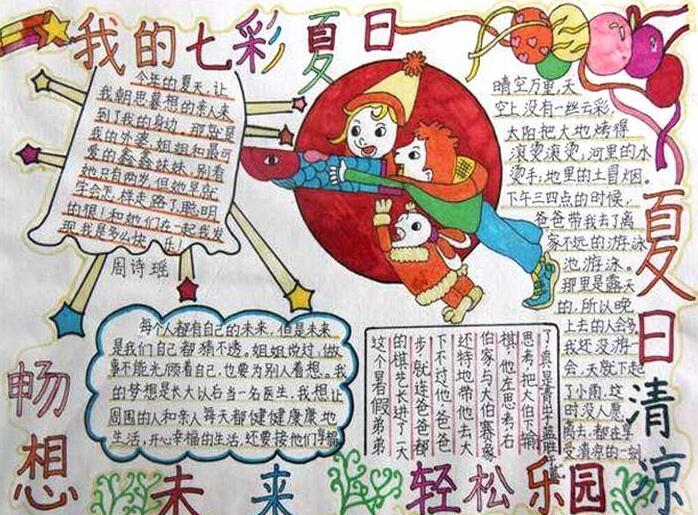 我的七彩夏日
今年的夏天,让
我朝思暮想的亲人来
到了我的身边,那就是
我的外婆、姐姐和最可
爱的鑫鑫妹妹,别看
她只有两岁,但她是就
学会怎样走路了,聪明
的狠!和她们在一起我发
现我是多么快乐!
周诗瑶
晴空万里,天
空上没有一丝云彩,
太阳把大地烤得
滚烫滚烫,河里的水
烫手;地里的土冒烟。
下午三四点的时候,
爸爸带我去了离
家不远的游泳
池游泳。
那里是露天
的,所以晚
上去的人会多
我还没游一
会,天就下起
了小雨,这
时没人愿
离去.都在享
受清凉的一刻
夏日清凉
每个人都有自己的未来,但是未来
是我们自己都猜不透。姐姐说过,做
事不能光顾看自己,也要为别人看想。我
的梦想是长大以后当一名医生,我想让
周围的人和亲人每天都健健康康地
生活,开心幸福的生活,还要接他们享福
畅想未来
这个暑假弟弟
的棋艺长进了一大
步,就连爸爸都
下不过他,爸爸
还特地带他去大
伯家与大伯赛象
棋,他左思考右
思考,把大伯下输
了真是青出于蓝胜于蓝
轻松乐园